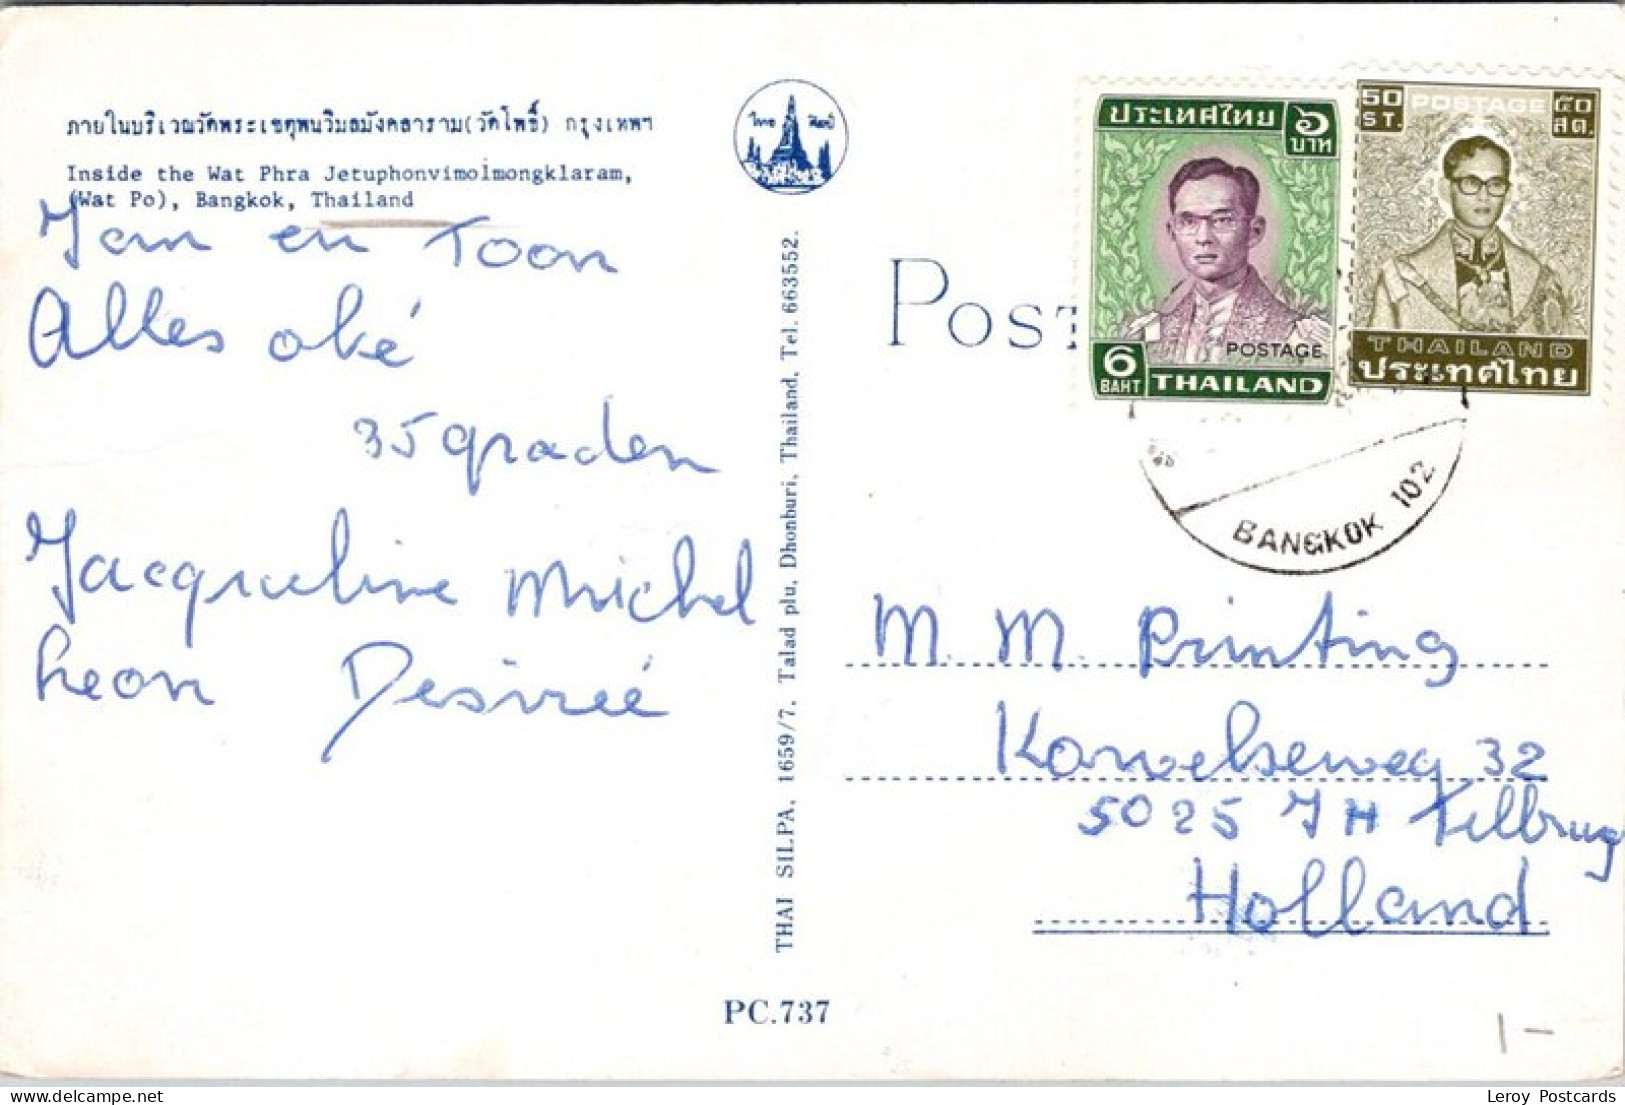 ภายในบริเวณวัดพระเชตุพนวิมลมังคลาราม(วัดโพธิ์) กรุงเทพฯ
Inside the Wat Phra Jetuphonvimolmongklaram,
(Wat Po), Bangkok, Thailand
Jan en Toon
Alles oké
35 graden
Jacqueline Michel
Leon Desireé
ไทย ศิลป์
THAI SILPA, 1659/7, Talad plu, Dhonburi, Thailand, Tel. 663552.
PC.737
POST
ประเทศไทย ๖ บาท
POSTAGE
6 BAHT THAILAND
50 ST. POSTAGE ๕๐ สต.
THAILAND
ประเทศไทย
BANGKOK 102
M. M. Printing
Korvelseweg 32
5025 JH Tilburg
Holland
1-
Leroy Postcards